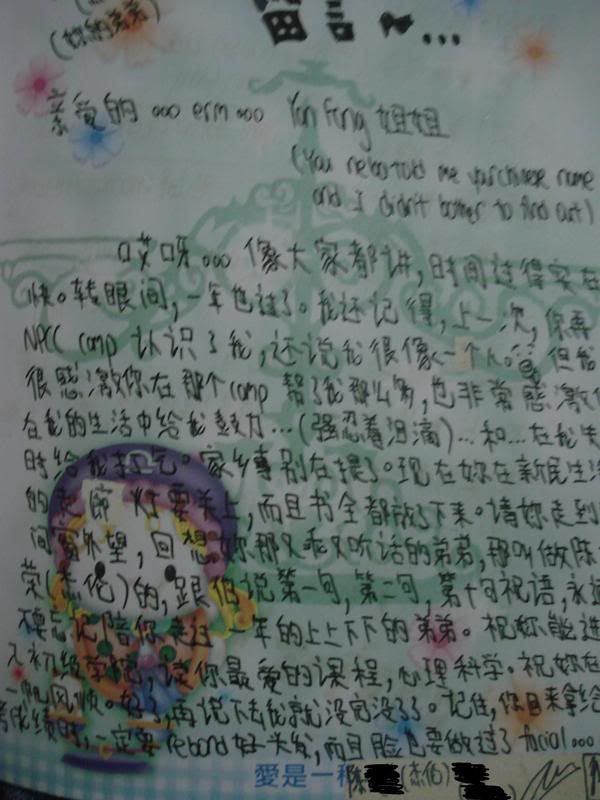 (妳的弟弟)
留言~...
亲爱的 ooo erm ooo Yan Fang 姐姐
(You nebo told me your chinese name
and I didn't bother to find out)
哎呀ooo 像大家都讲,时间过得实在
快。转眼间,一年也过了。我还记得,上一次,你再
NPCC camp 认识了我,还说我很像一个人。但我
很感激你在那个camp 帮了我那么多,也非常感激你
在我的生活中给我鼓力...(强忍着泪滴)...和...在我失
时给我打气。家乡事别在提了。现在妳在新民生活
的走廊 灯要关上,而且书全都放了下来。请妳走到
间窗外望,回想妳那又乖又听话的弟弟,那叫做陈
荣(杰伦)的,跟伯说第一句,第二句,第十句祝语,永远
不要忘记陪你走过一年的上上下下的弟弟。祝妳能进
入初级学院,读你最爱的课程,心理科学。祝妳在
一帆风顺。好了,再说下去我就没完没了了。记住,你日来拿给
考成绩时,一定要rebond好头发,而且脸也要做过了facial...
愛是一種
陈 (杰伦)